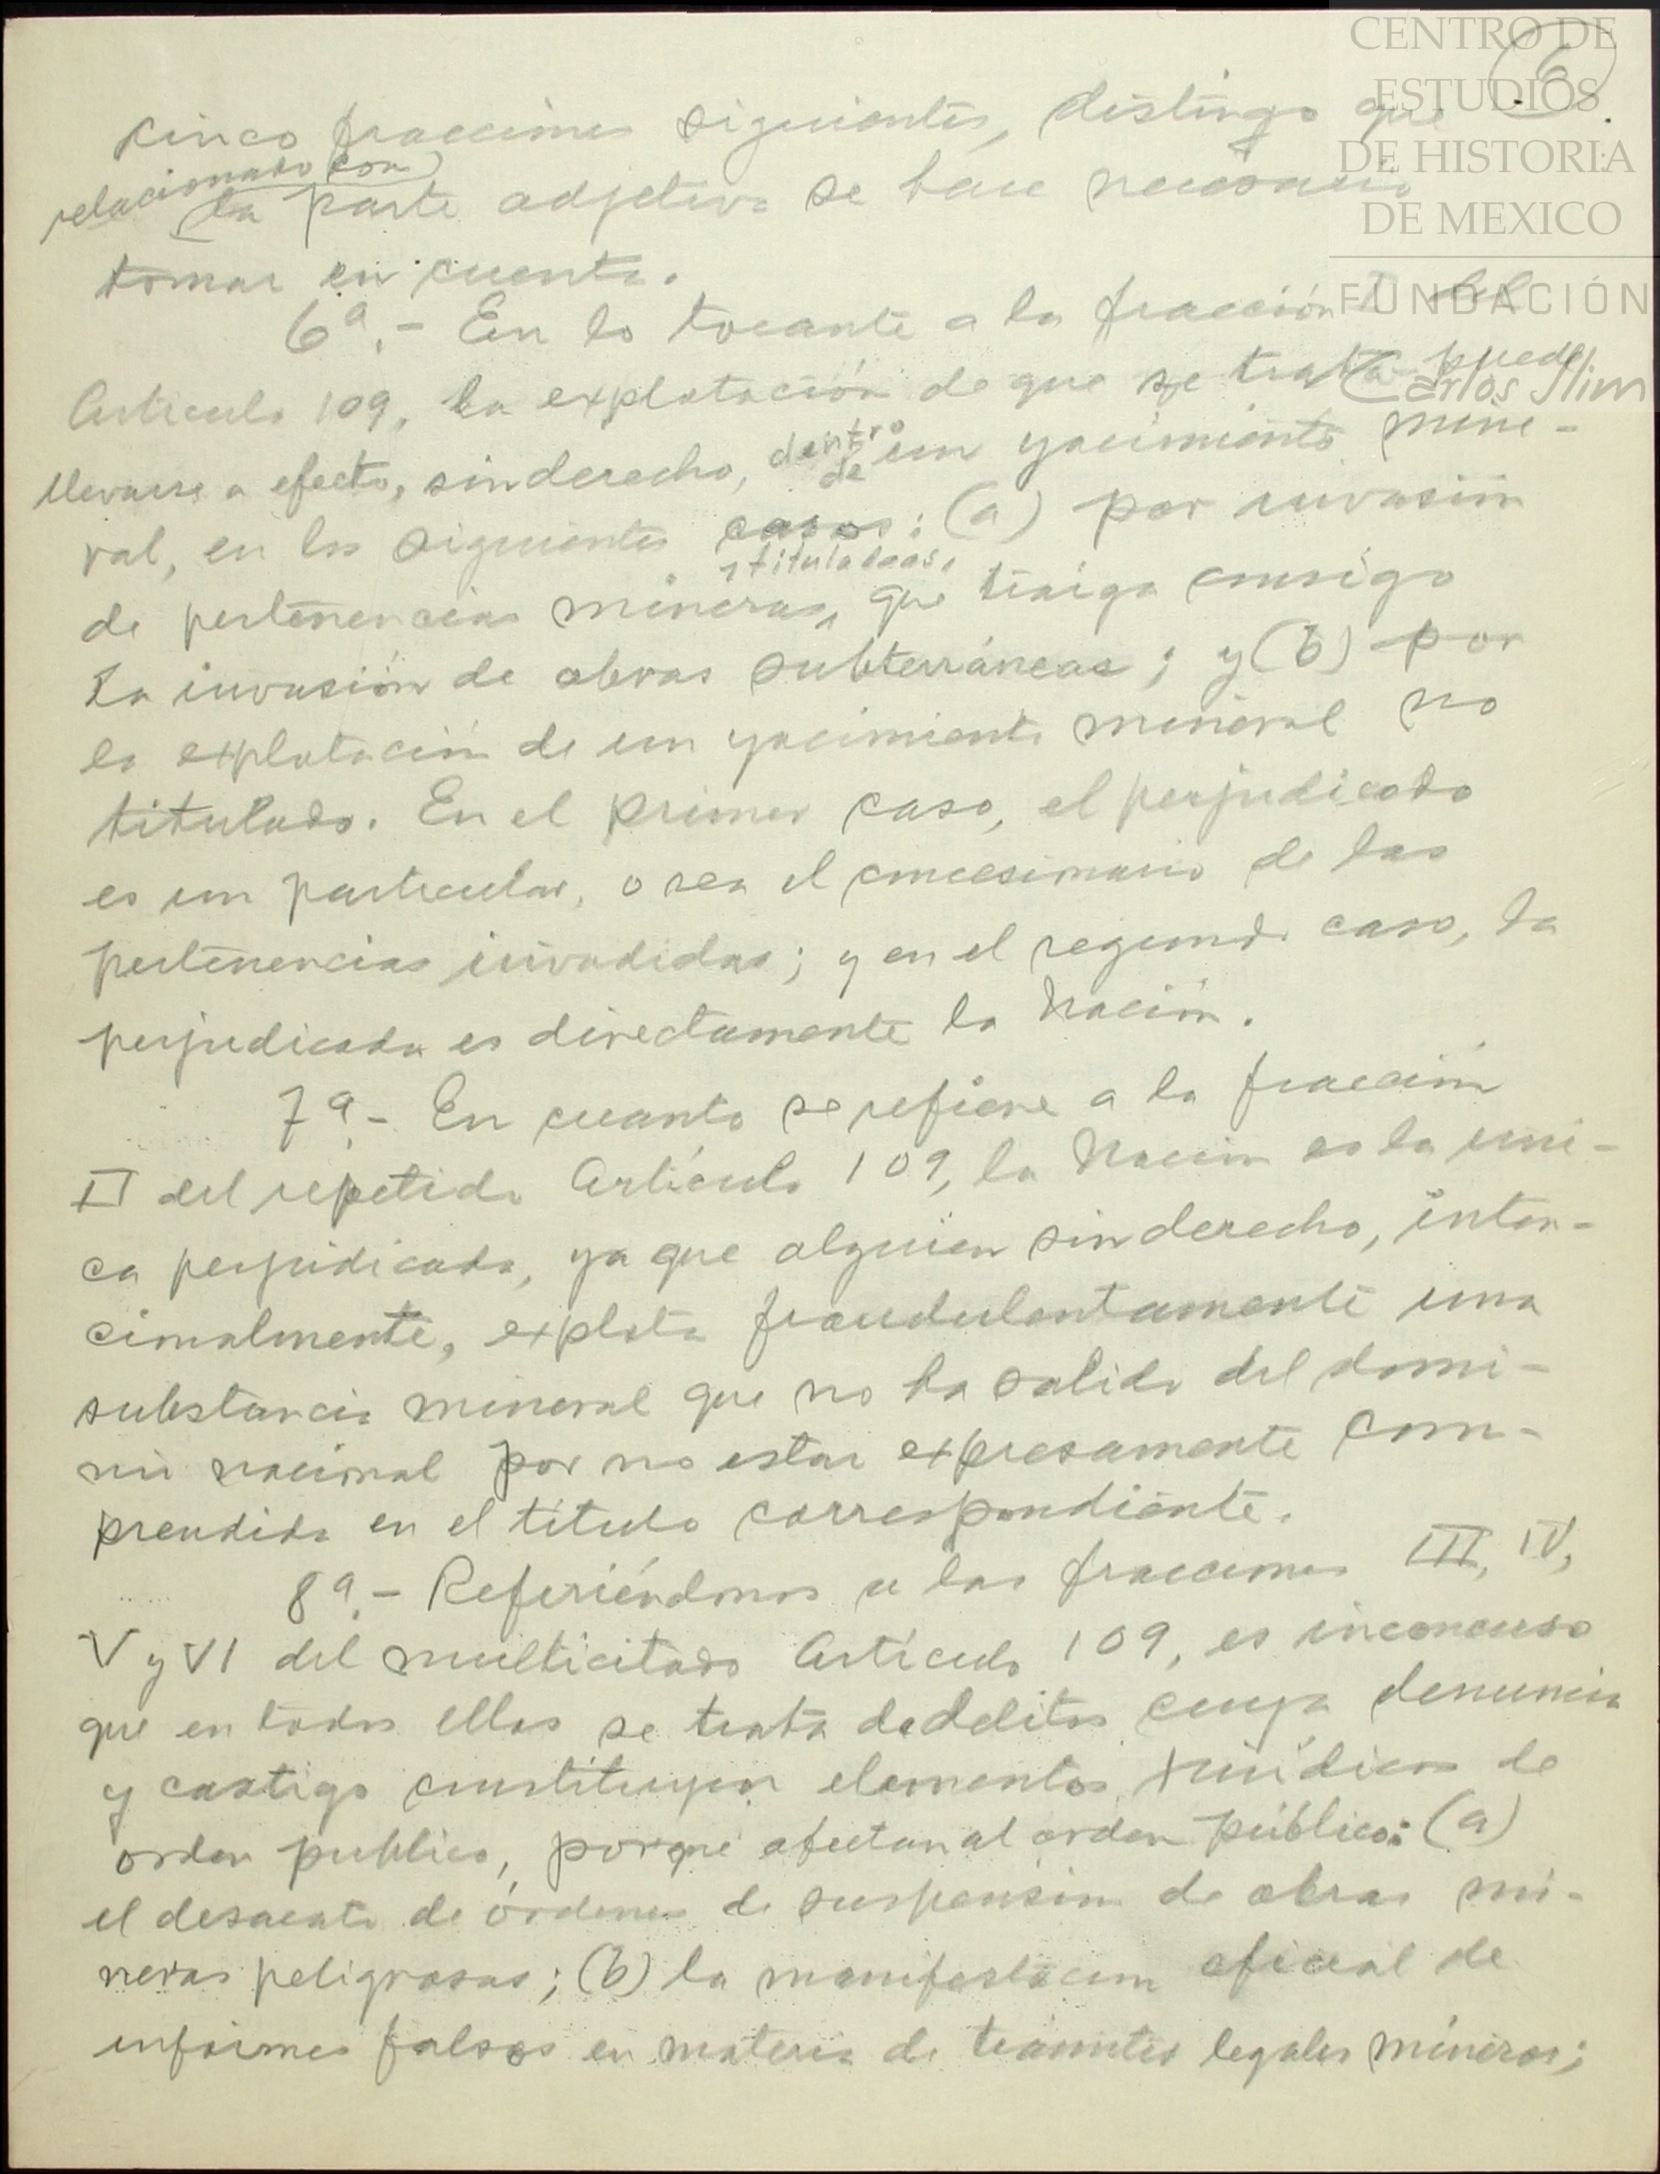 CENTRO DE
ESTUDIOS
DE HISTORIA
DE MEXICO
FUNDACIÓN
Carlos Slim
6
cinco fracciones siguientes, distingo que
relacionado con
la parte adjetiva se hace necesario
tomar en cuenta.
6ª.- En lo tocante a la fracción I del
Artículo 109, la explotación de que se trata puede
llevarse a efecto, sin derecho, dentro de un yacimiento mine-
ral, en los siguientes casos: (a) por invasión
de pertenencias mineras tituladas, que traiga consigo
la invasión de obras subterráneas; y (b) por
la explotación de un yacimiento mineral no
titulado. En el primer caso, el perjudicado
es un particular, o sea el concesionario de las
pertenencias invadidas; y en el segundo caso, la
perjudicada es directamente la Nación.
7ª.- En cuanto se refiere a la fracción
II del repetido Artículo 109, la Nación es la úni-
ca perjudicada, ya que alguien sin derecho, inten-
cionalmente, explota fraudulentamente una
substancia mineral que no ha salido del domi-
nio nacional por no estar expresamente com-
prendida en el título correspondiente.
8ª.- Refiriéndonos a las fracciones III, IV,
V y VI del multicitado Artículo 109, es inconcuso
que en todas ellas se trata de delitos cuya denuncia
y castigo constituyen elementos jurídicos de
orden publico, porque afectan al orden público: (a)
el desacato de órdenes de suspensión de obras mi-
neras peligrosas; (b) la manifestación oficial de
informes falsos en materia de trámites legales mineros;